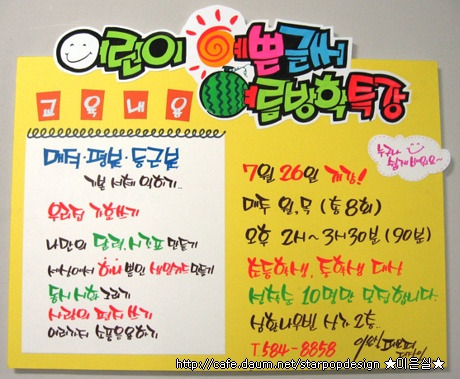 어린이 예쁜글씨
여름방학특강
교육내용
매직·평붓·둥근붓
기본 서체 익히기..
우리집 가훈쓰기
나만의 달력, 시간표 만들기
세상에서 하나뿐인 생일카드 만들기
동시 시화 그리기
사랑의 편지 쓰기
여러가지 소품응용하기
누구나 쉽게 배워요~
7월 26일 개강!
매주 월,목 (총 8회)
오후 2시~3시30분 (90분)
초등학생, 중학생 대상
선착순 10명만 모집합니다.
상가 2층..
T 584-8858
이은설
http://cafe.daum.net/starpopdesign ★이은설★